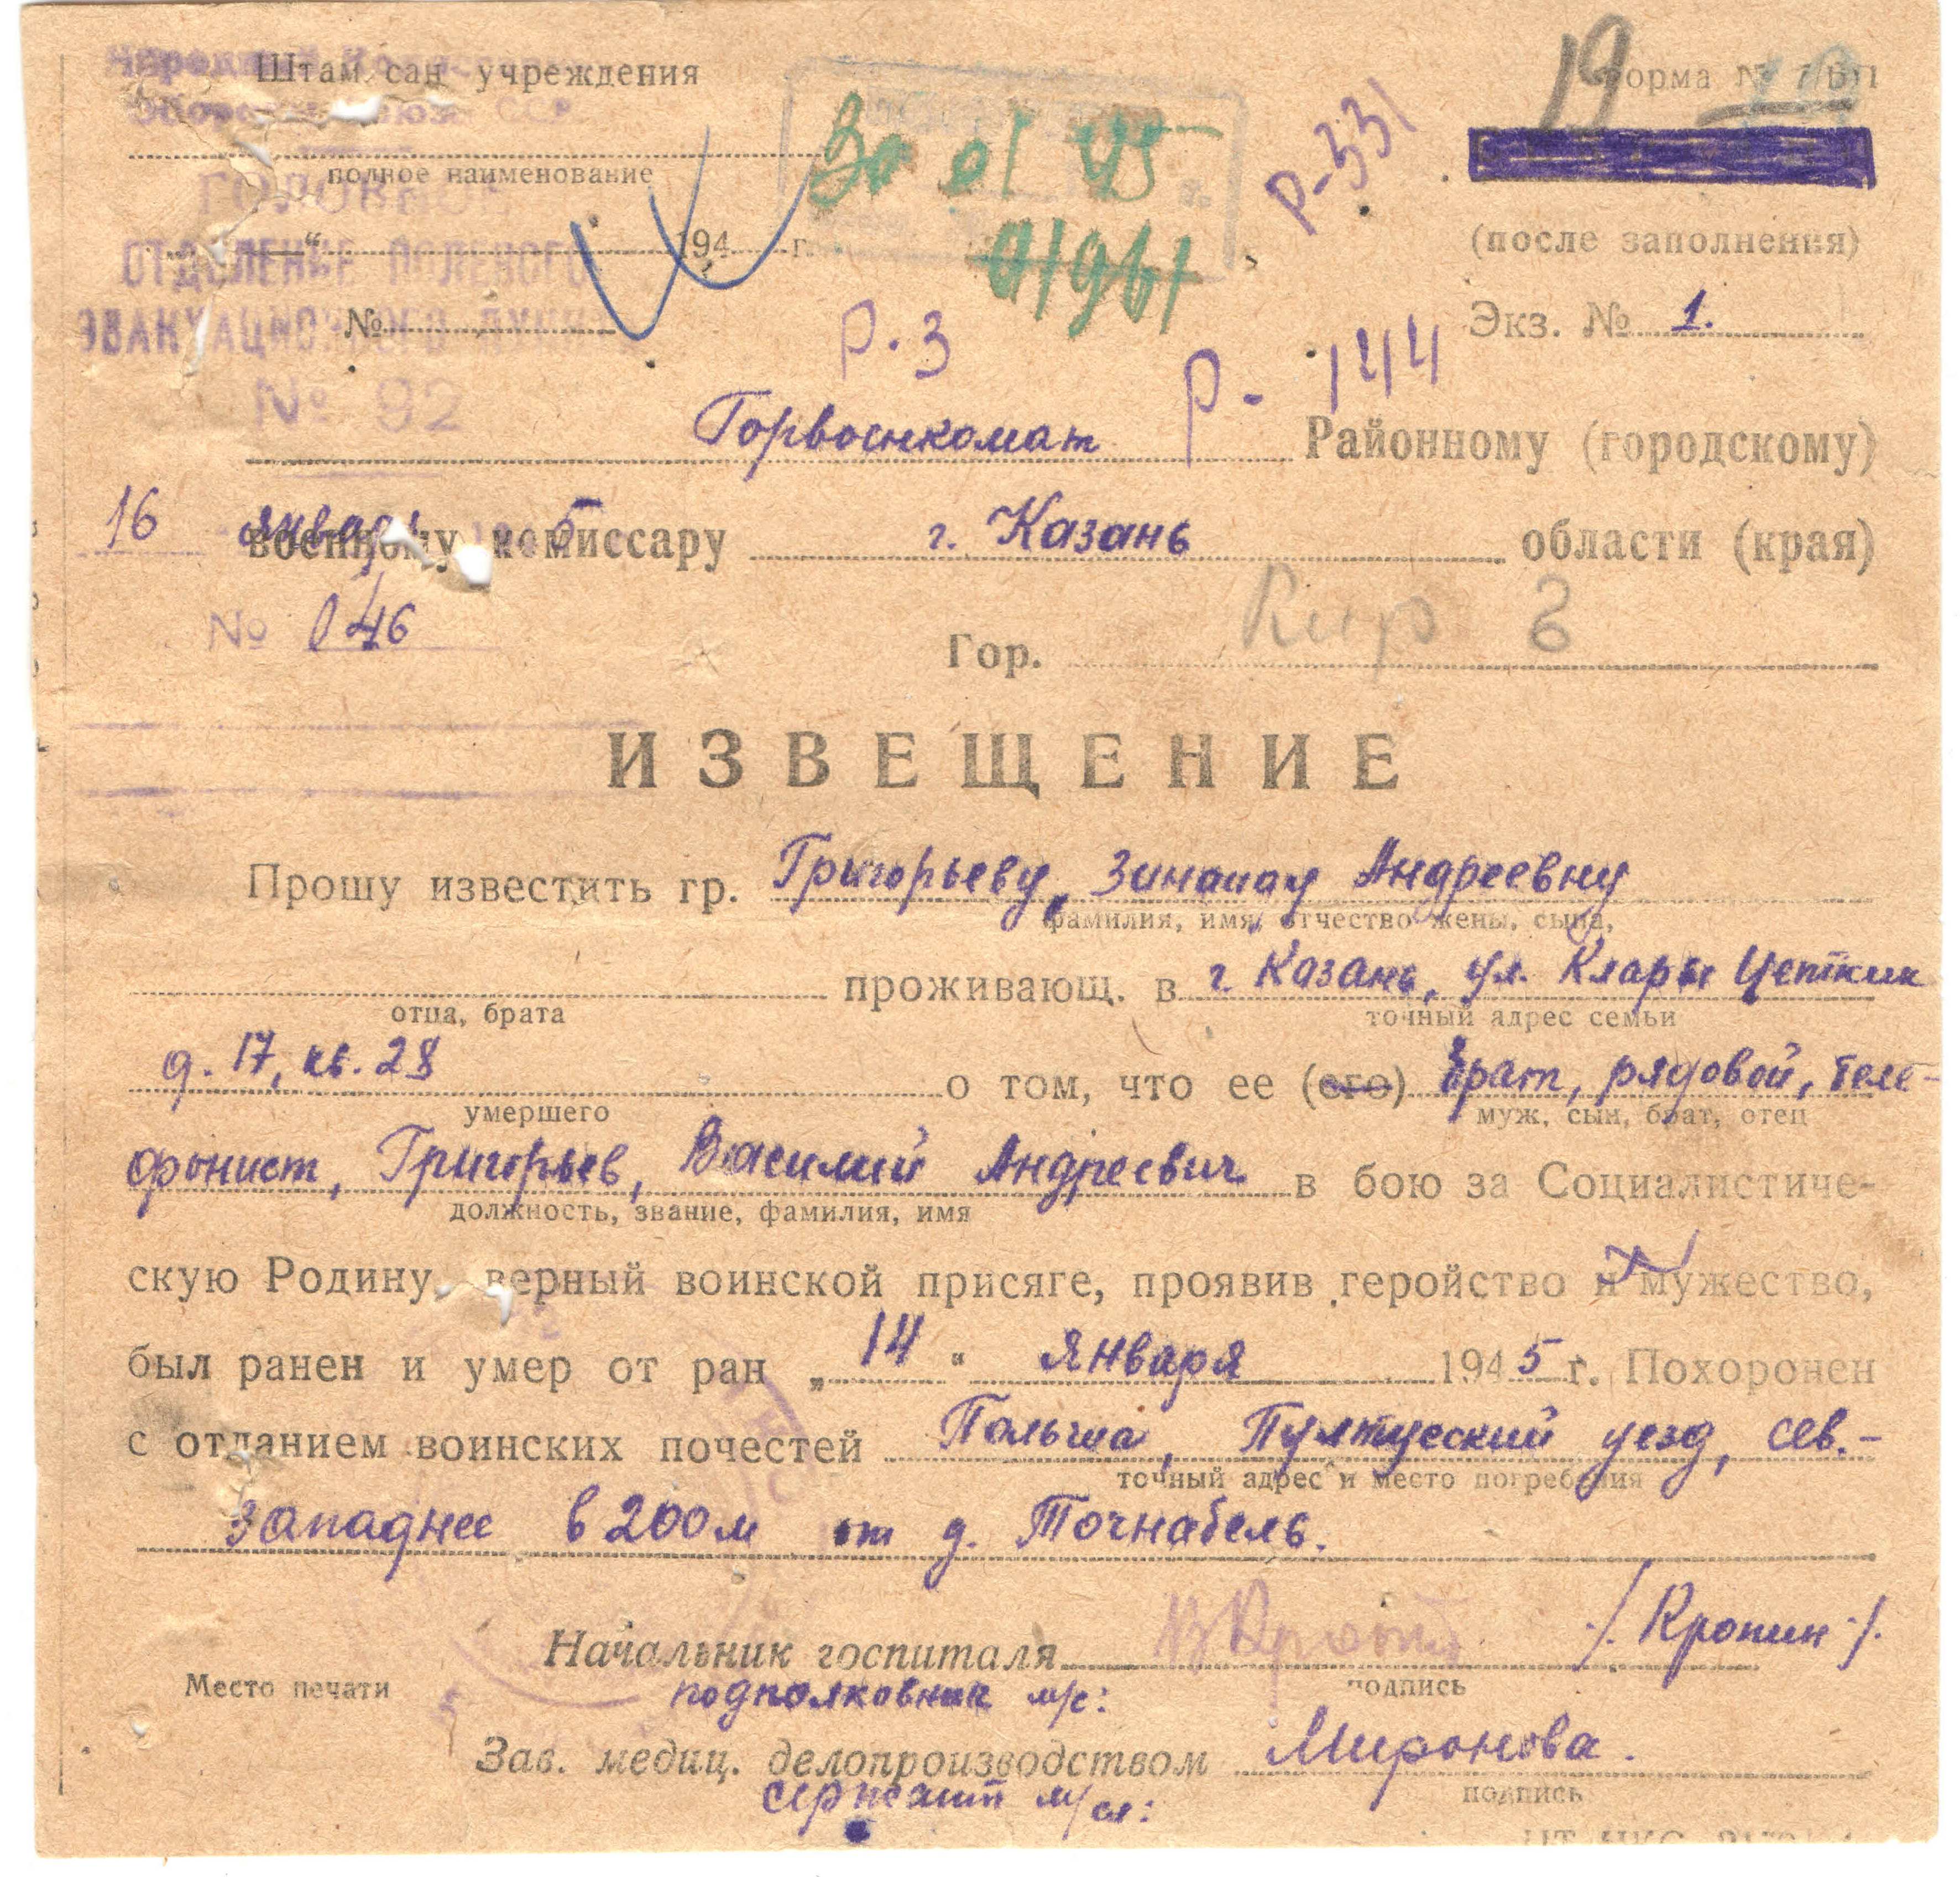 Штам сан учреждения
19
Форма №
полное наименование
30 01 45
01961
Р-331
(после заполнения)
ГОЛОВНОЕ
ОТДЕЛЕНИЕ ПОЛЕВОГО
ЭВАКУАЦИОННОГО ПУНКТА
№ 92
" 194 г.
№
Экз. № 1.
Р-3
Р-144
Горвоенкомат Районному (городскому)
16 января 5
военному комиссару г. Казань области (края)
№ 046
Гор. Кир 3
ИЗВЕЩЕНИЕ
Прошу известить гр. Григорьеву, Зинаиду Андреевну
фамилия, имя, отчество жены, сына,
проживающ. в г. Казань, ул. Клары Цеткин
отца, брата точный адрес семьи
д. 17, кв. 28 о том, что ее (его) брат, рядовой, теле-
умершего муж, сын, брат, отец
фонист, Григорьев, Василий Андреевич в бою за Социалистиче-
должность, звание, фамилия, имя
скую Родину, верный воинской присяге, проявив геройство и мужество,
был ранен и умер от ран „14" января 1945 г. Похоронен
с отданием воинских почестей Польша, Пултуский уезд, сев.-
точный адрес и место погребения
западнее в 200 м от д. Точнабель.
Начальник госпиталя /. Кропин ./.
Место печати подполковник м/с: подпись
Зав. медиц. делопроизводством Миронова.
сержант м/сл: подпись